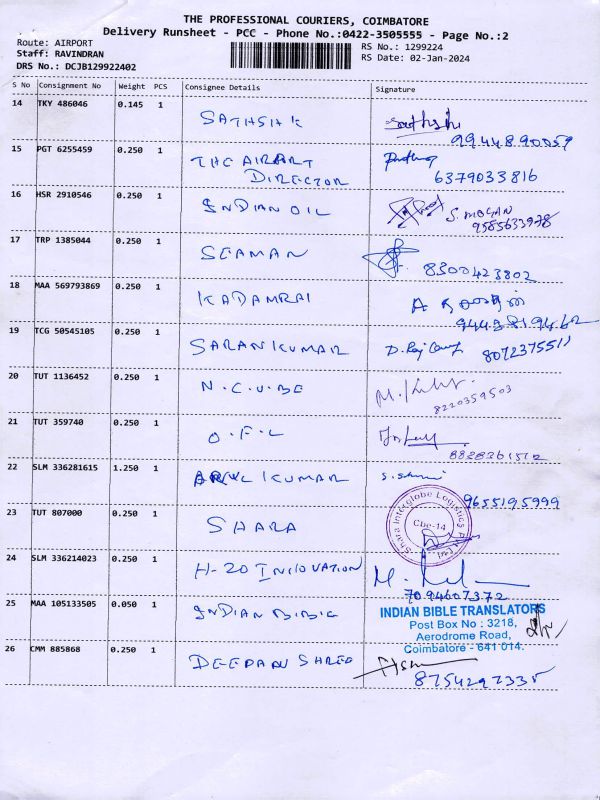 THE PROFESSIONAL COURIERS, COIMBATORE
Delivery Runsheet - PCC - Phone No.:0422-3505555 - Page No.:2
Route: AIRPORT
Staff: RAVINDRAN
DRS No.: DCJB129922402
RS No.: 1299224
RS Date: 02-Jan-2024
S No Consignment No Weight PCS Consignee Details Signature
14 TKY 486046 0.145 1 SATHSHK
Sathshi
9944890059
15 PGT 6255459 0.250 1 THE AIRPORT
DIRECTOR
6379033816
16 HSR 2910546 0.250 1 INDIAN OIL
S. MOGAN
9585633978
17 TRP 1385044 0.250 1 SEAMAN
8300423802
18 MAA 569793869 0.250 1 KADAMRAI
19 TCG 50545105 0.250 1 SARANKUMAR
8072375511
20 TUT 1136452 0.250 1 N.C.U.BE
8220359503
21 TUT 359740 0.250 1 O.F.L
22 SLM 336281615 1.250 1 KUMAR
9655195999
23 TUT 807000 0.250 1 SHARA
Shara Interglobe Logistics Pvt Ltd.
Cbe-14
24 SLM 336214023 0.250 1 H-20 INNOVATION
7094607372
25 MAA 105133505 0.050 1 INDIAN BIBIC
INDIAN BIBLE TRANSLATORS
Post Box No : 3218,
Aerodrome Road,
Coimbatore - 641 014.
26 CMM 885868 0.250 1 DEEPAN SHREE
8754297335